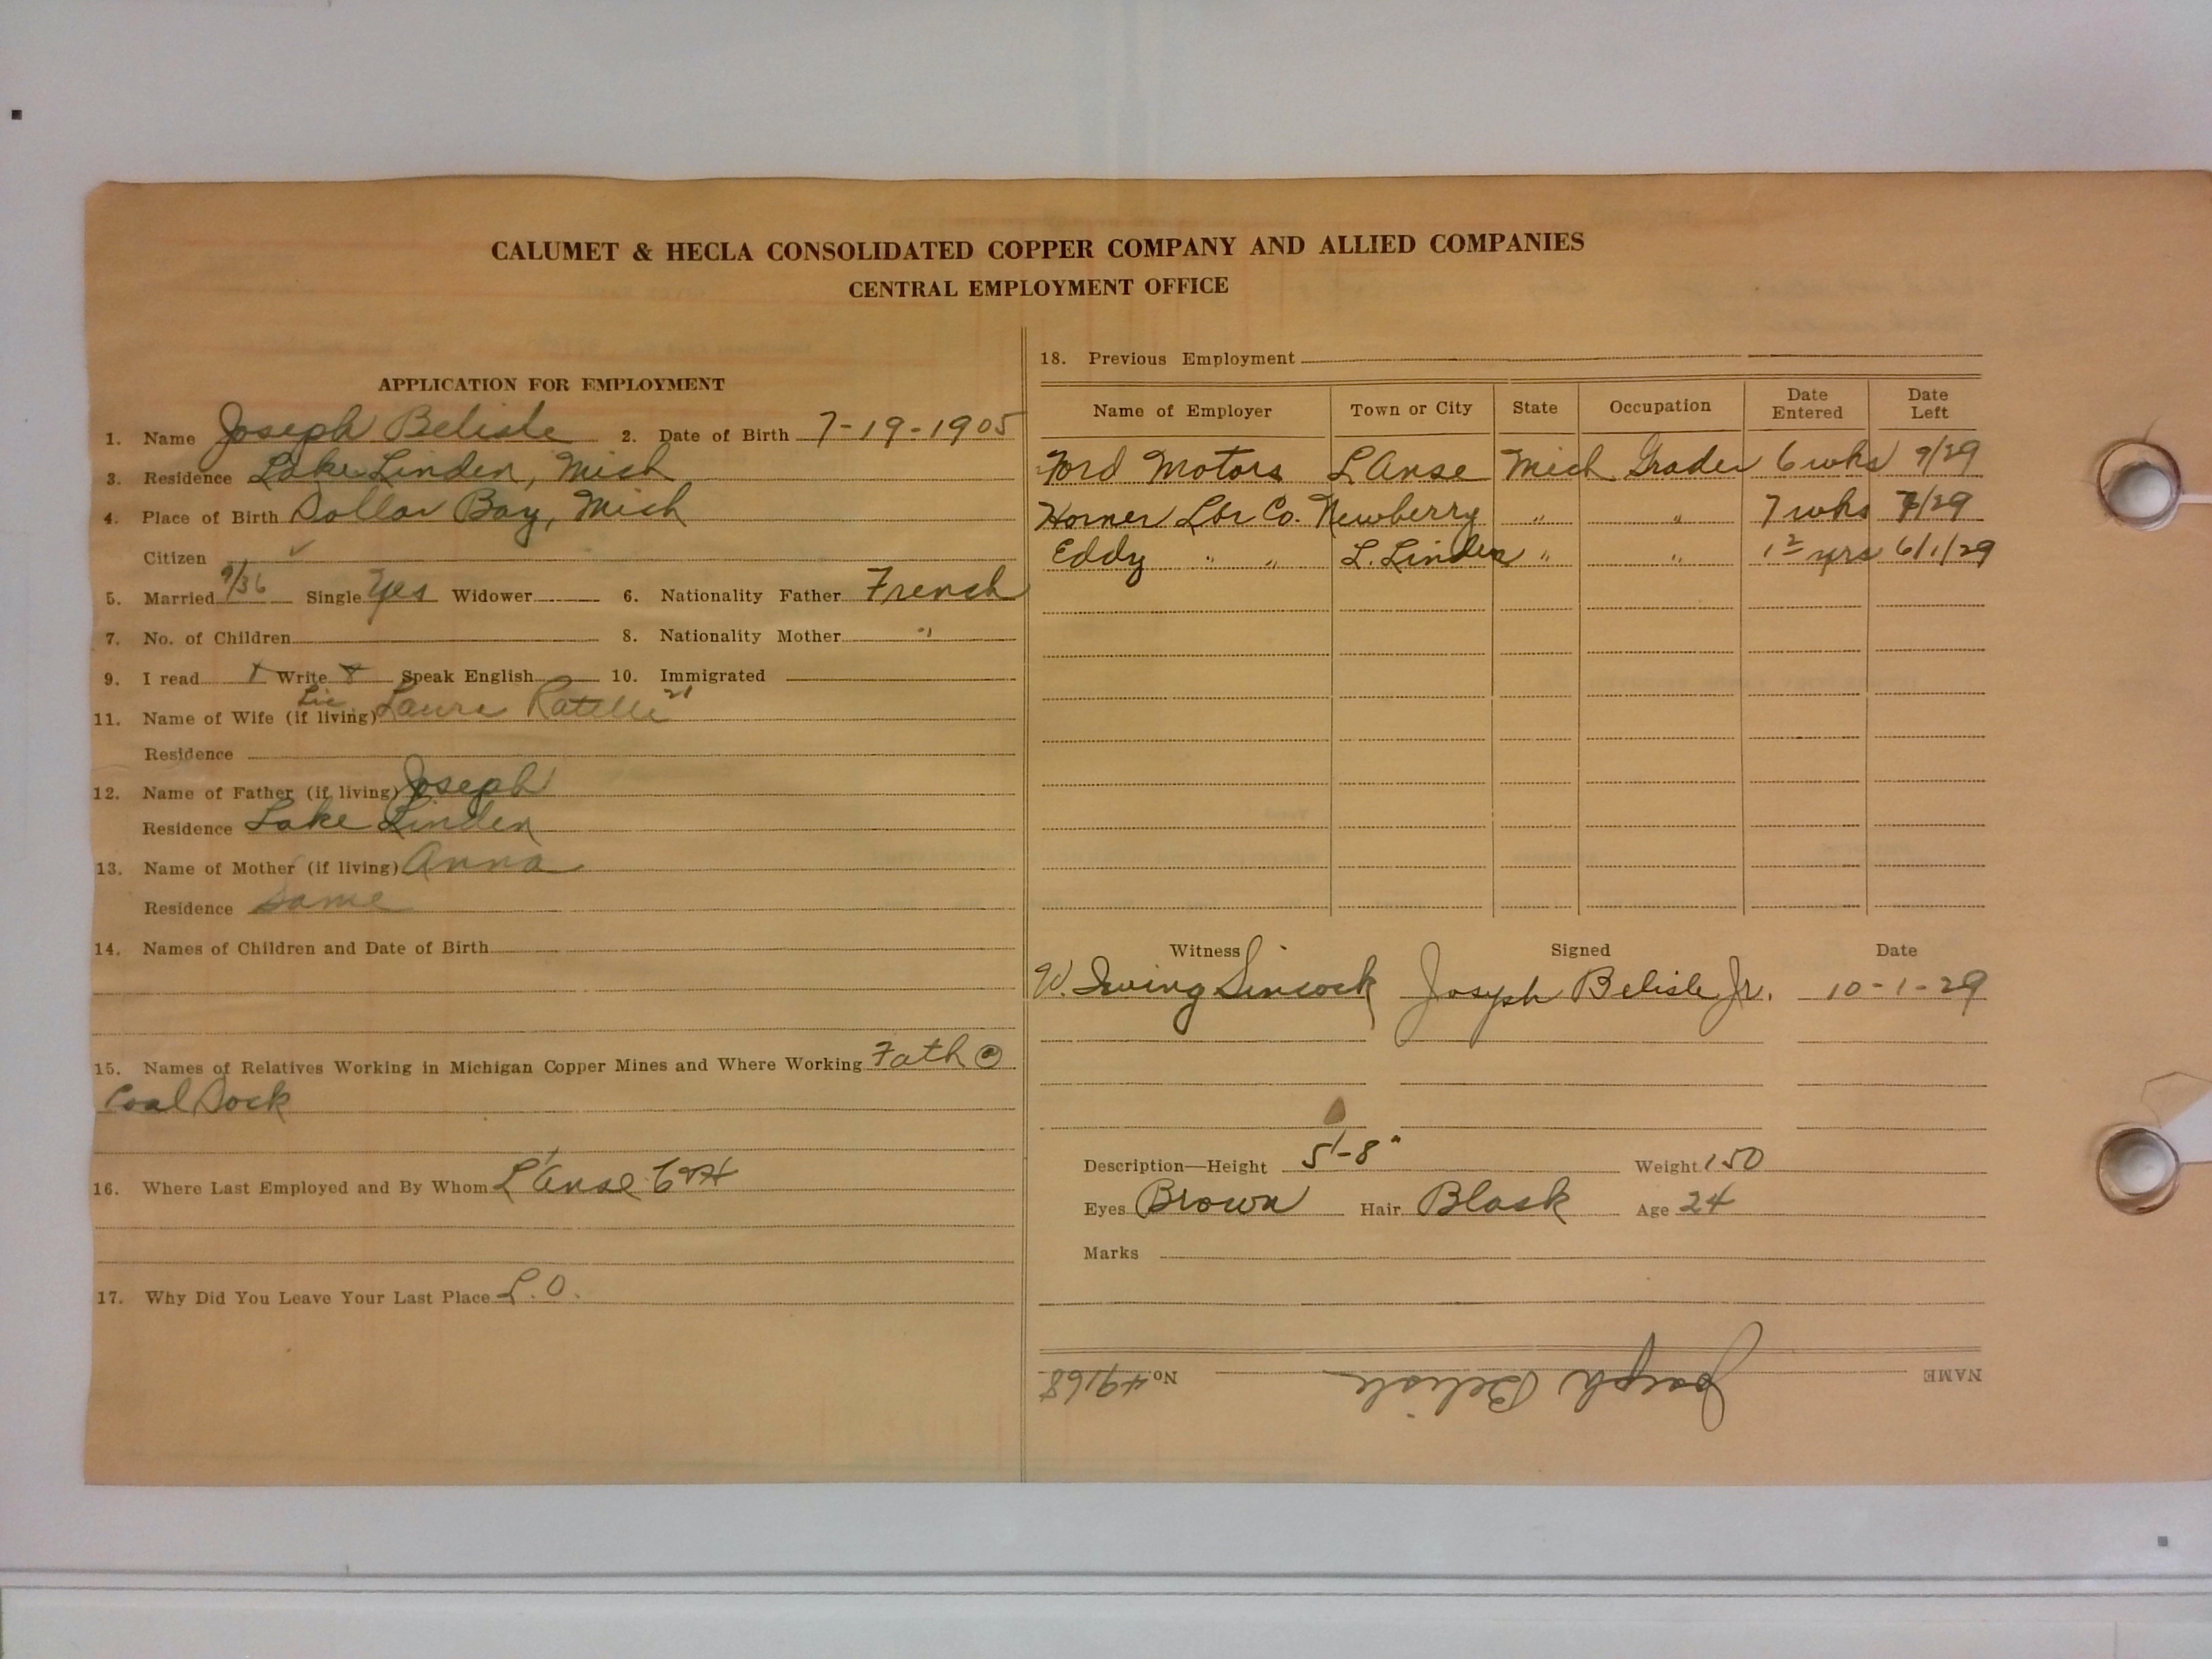 CALUMET & HECLA CONSOLIDATED COPPER COMPANY AND ALLIED COMPANIES
CENTRAL EMPLOYMENT OFFICE
APPLICATION FOR EMPLOYMENT
1. Name Joseph Belisle 2. Date of Birth 7-19-1905
3. Residence Lake Linden, Mich
4. Place of Birth Dollar Bay, Mich
Citizen ✓
5. Married 9/36 Single Yes Widower 6. Nationality Father French
7. No. of Children 8. Nationality Mother "
9. I read Write Speak English 10. Immigrated
11. Name of Wife (if living) Laura Ratelle 21
Residence
12. Name of Father (if living) Joseph
Residence Lake Linden
13. Name of Mother (if living) Anna
Residence Same
14. Names of Children and Date of Birth
15. Names of Relatives Working in Michigan Copper Mines and Where Working Fath @
Coal Dock
16. Where Last Employed and By Whom L'Anse
17. Why Did You Leave Your Last Place L.O.
18. Previous Employment
Name of Employer Town or City State Occupation Date Entered Date Left
Ford Motors L Anse Mich Grader 6 wks 9/29
Horner Lbr Co. Newberry " " 7 wks 7/29
Eddy " " L. Linden " " yrs 6/1/29
Witness Signed Date
W. Irving Sincock Joseph Belisle Jr. 10-1-29
Description—Height 5'-8" Weight 150
Eyes Brown Hair Black Age 24
Marks
NAME Joseph Belisle No. 49168